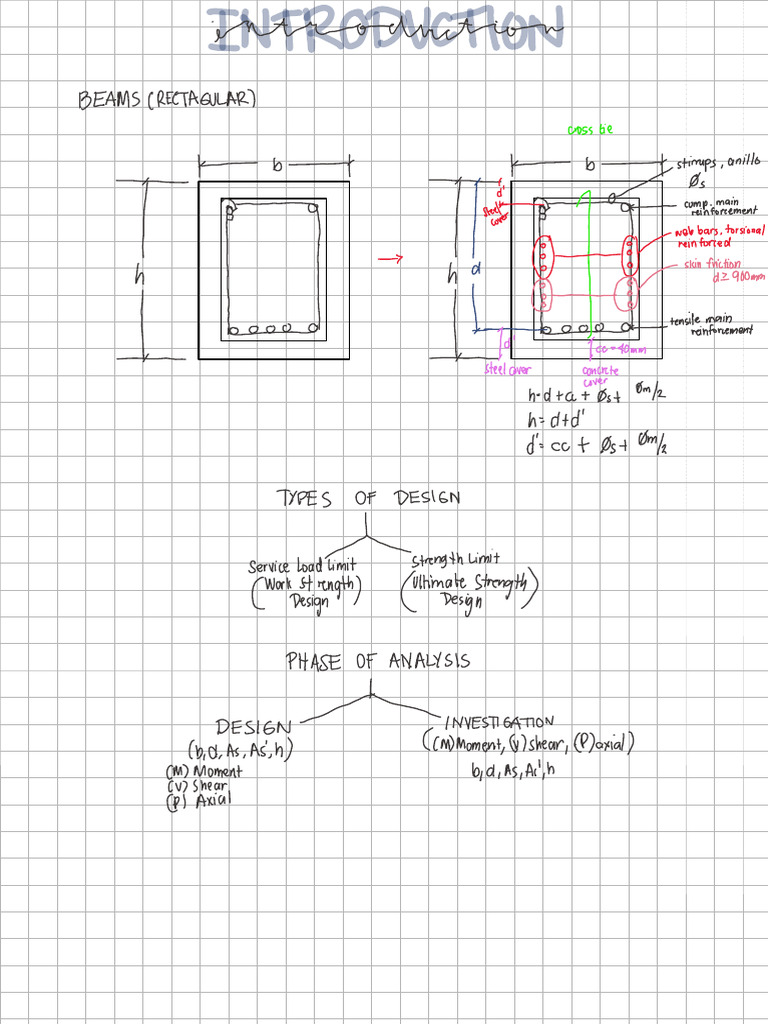 INTRODUCTION
introduction
BEAMS (RECTAGULAR)
cross tie
b
b
stirrups, anillo
Øs
d'
steel cover
comp. main
reinforcement
web bars, torsional
reinforced
skin friction
d ≥ 900mm
h
h
d
tensile main
reinforcement
d'
cc = 40mm
steel cover
concrete
cover
h = d + cc + Øs + Øm/2
h = d + d'
d' = cc + Øs + Øm/2
TYPES OF DESIGN
Service Load Limit
(Work Strength)
Design
Strength Limit
(Ultimate Strength
Design)
PHASE OF ANALYSIS
DESIGN
(b, d, As, As', h)
(M) Moment
(V) Shear
(P) Axial
INVESTIGATION
((M) Moment, (V) Shear, (P) axial)
b, d, As, As', h